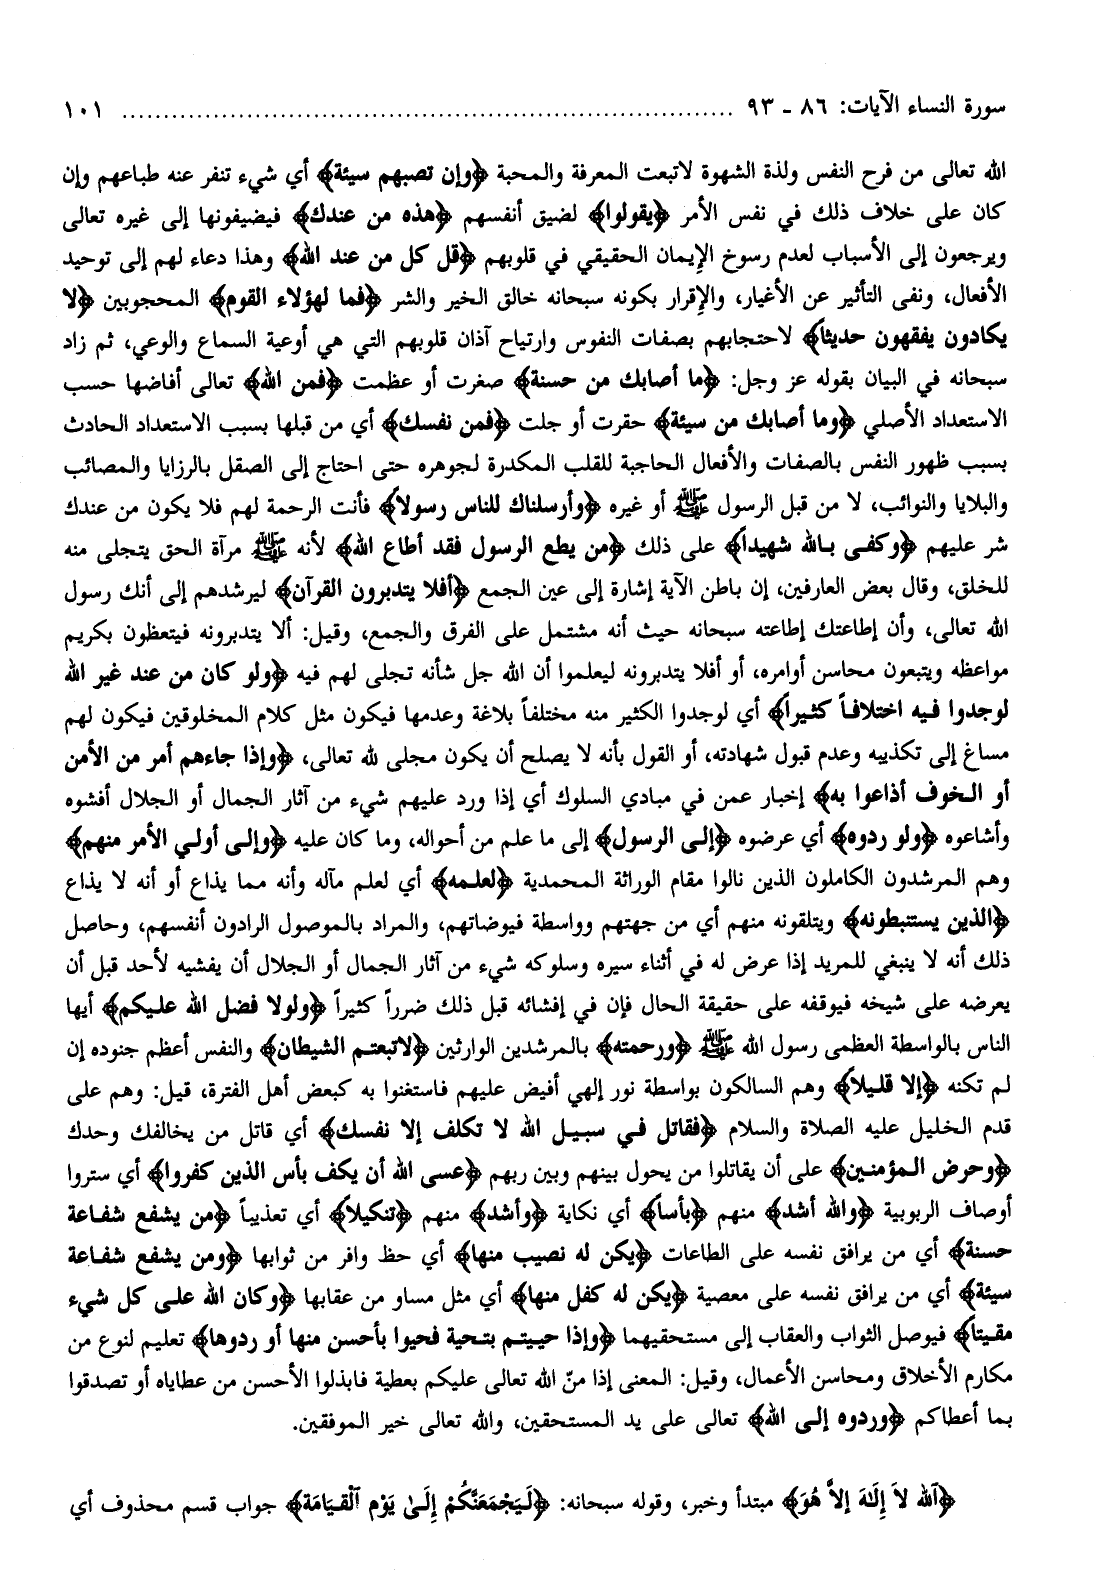 سورة النساء الآيات: ٨٦ - ٩٣ ........................................................................... ١٠١
الله تعالى من فرح النفس ولذة الشهوة لاتبعت المعرفة والمحبة ﴿وإن تصبهم سيئة﴾ أي شيء تنفر عنه طباعهم وإن
كان على خلاف ذلك في نفس الأمر ﴿يقولوا﴾ لضيق أنفسهم ﴿هذه من عندك﴾ فيضيفونها إلى غيره تعالى
ويرجعون إلى الأسباب لعدم رسوخ الإيمان الحقيقي في قلوبهم ﴿قل كل من عند الله﴾ وهذا دعاء لهم إلى توحيد
الأفعال، ونفى التأثير عن الأغيار، والإقرار بكونه سبحانه خالق الخير والشر ﴿فما لهؤلاء القوم﴾ المحجوبين ﴿لا
يكادون يفقهون حديثاً﴾ لاحتجابهم بصفات النفوس وارتياح آذان قلوبهم التي هي أوعية السماع والوعي، ثم زاد
سبحانه في البيان بقوله عز وجل: ﴿ما أصابك من حسنة﴾ صغرت أو عظمت ﴿فمن الله﴾ تعالى أفاضها حسب
الاستعداد الأصلي ﴿وما أصابك من سيئة﴾ حقرت أو جلت ﴿فمن نفسك﴾ أي من قبلها بسبب الاستعداد الحادث
بسبب ظهور النفس بالصفات والأفعال الحاجبة للقلب المكدرة لجوهره حتى احتاج إلى الصقل بالرزايا والمصائب
والبلايا والنوائب، لا من قبل الرسول ﷺ أو غيره ﴿وأرسلناك للناس رسولاً﴾ فأنت الرحمة لهم فلا يكون من عندك
شر عليهم ﴿وكفى بالله شهيداً﴾ على ذلك ﴿من يطع الرسول فقد أطاع الله﴾ لأنه ﷺ مرآة الحق يتجلى منه
للخلق، وقال بعض العارفين، إن باطن الآية إشارة إلى عين الجمع ﴿أفلا يتدبرون القرآن﴾ ليرشدهم إلى أنك رسول
الله تعالى، وأن إطاعتك إطاعته سبحانه حيث أنه مشتمل على الفرق والجمع، وقيل: ألا يتدبرونه فيتعظون بكريم
مواعظه ويتبعون محاسن أوامره، أو أفلا يتدبرونه ليعلموا أن الله جل شأنه تجلى لهم فيه ﴿ولو كان من عند غير الله
لوجدوا فيه اختلافاً كثيراً﴾ أي لوجدوا الكثير منه مختلفاً بلاغة وعدمها فيكون مثل كلام المخلوقين فيكون لهم
مساغ إلى تكذيبه وعدم قبول شهادته، أو القول بأنه لا يصلح أن يكون مجلى لله تعالى، ﴿وإذا جاءهم أمر من الأمن
أو الخوف أذاعوا به﴾ إخبار عمن في مبادي السلوك أي إذا ورد عليهم شيء من آثار الجمال أو الجلال أفشوه
وأشاعوه ﴿ولو ردوه﴾ أي عرضوه ﴿إلى الرسول﴾ إلى ما علم من أحواله، وما كان عليه ﴿وإلى أولي الأمر منهم﴾
وهم المرشدون الكاملون الذين نالوا مقام الوراثة المحمدية ﴿لعلمه﴾ أي لعلم مآله وأنه مما يذاع أو أنه لا يذاع
﴿الذين يستنبطونه﴾ ويتلقونه منهم أي من جهتهم وواسطة فيوضاتهم، والمراد بالموصول الرادون أنفسهم، وحاصل
ذلك أنه لا ينبغي للمريد إذا عرض له في أثناء سيره وسلوكه شيء من آثار الجمال أو الجلال أن يفشيه لأحد قبل أن
يعرضه على شيخه فيوقفه على حقيقة الحال فإن في إفشائه قبل ذلك ضرراً كثيراً ﴿ولولا فضل الله عليكم﴾ أيها
الناس بالواسطة العظمى رسول الله ﷺ ﴿ورحمته﴾ بالمرشدين الوارثين ﴿لاتبعتم الشيطان﴾ والنفس أعظم جنوده إن
لم تكنه ﴿إلا قليلاً﴾ وهم السالكون بواسطة نور إلهي أفيض عليهم فاستغنوا به كبعض أهل الفترة، قيل: وهم على
قدم الخليل عليه الصلاة والسلام ﴿فقاتل في سبيل الله لا تكلف إلا نفسك﴾ أي قاتل من يخالفك وحدك
﴿وحرض المؤمنين﴾ على أن يقاتلوا من يحول بينهم وبين ربهم ﴿عسى الله أن يكف بأس الذين كفروا﴾ أي ستروا
أوصاف الربوبية ﴿والله أشد﴾ منهم ﴿بأساً﴾ أي نكاية ﴿وأشد﴾ منهم ﴿تنكيلاً﴾ أي تعذيباً ﴿من يشفع شفاعة
حسنة﴾ أي من يرافق نفسه على الطاعات ﴿يكن له نصيب منها﴾ أي حظ وافر من ثوابها ﴿ومن يشفع شفاعة
سيئة﴾ أي من يرافق نفسه على معصية ﴿يكن له كفل منها﴾ أي مثل مساو من عقابها ﴿وكان الله على كل شيء
مقيتاً﴾ فيوصل الثواب والعقاب إلى مستحقيهما ﴿وإذا حييتم بتحية فحيوا بأحسن منها أو ردوها﴾ تعليم لنوع من
مكارم الأخلاق ومحاسن الأعمال، وقيل: المعنى إذا منّ الله تعالى عليكم بعطية فابذلوا الأحسن من عطاياه أو تصدقوا
بما أعطاكم ﴿وردوه إلى الله﴾ تعالى على يد المستحقين، والله تعالى خير الموفقين.
﴿اَللّه لاَ إِلَهَ إِلاَّ هُوَ﴾ مبتدأ وخبر، وقوله سبحانه: ﴿لَيَجْمَعَنَّكُمْ إِلَىٰ يَوْمِ ٱلْقِيَامَة﴾ جواب قسم محذوف أي